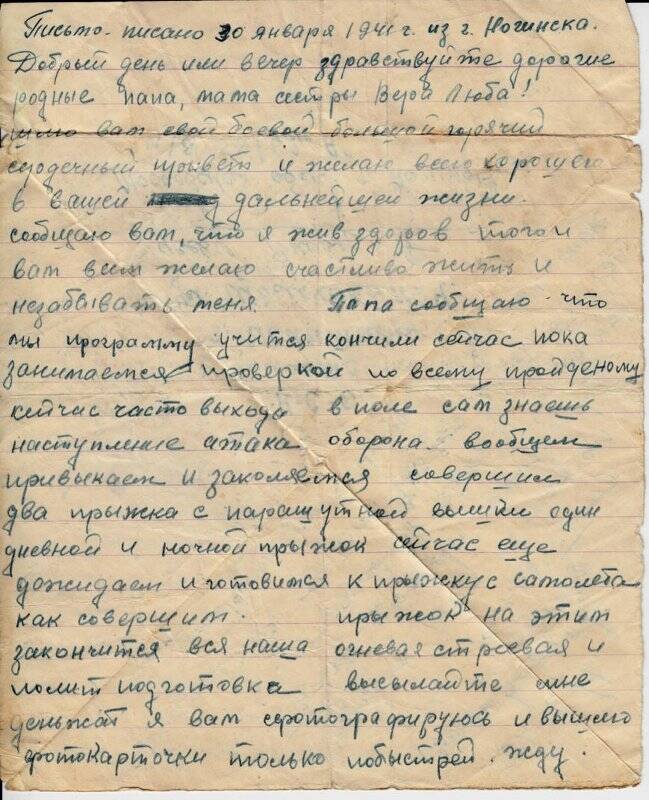 Письмо писано 30 января 1941 г. из г. Ногинска.
Добрый день или вечер здравствуйте дорогие
родные папа, мама сестры Вера Люба!
шлю вам свой боевой большой горячий
сердечный привет и желаю всего хорошего
в вашей дальнейшей жизни.
сообщаю вам, что я жив здоров того и
вам всем желаю счастливо жить и
незабывать меня. Папа сообщаю что
мы программу учится кончили сейчас пока
занимаемся проверкой по всему пройденому
сейчас часто выхода в поле сам знаешь
наступление атака оборона вообщем
привыкаем и закаляемся совершили
два прыжка с парашутной вышки один
дневной и ночной прыжок сейчас еще
дожидаем и готовимся к прыжку с самолета
как совершим. прыжок на этим
закончится вся наша огневая строевая и
полит подготовка высылайте мне
я вам сфотографируюсь и вышлю
фотокарточки только побыстрей. жду.